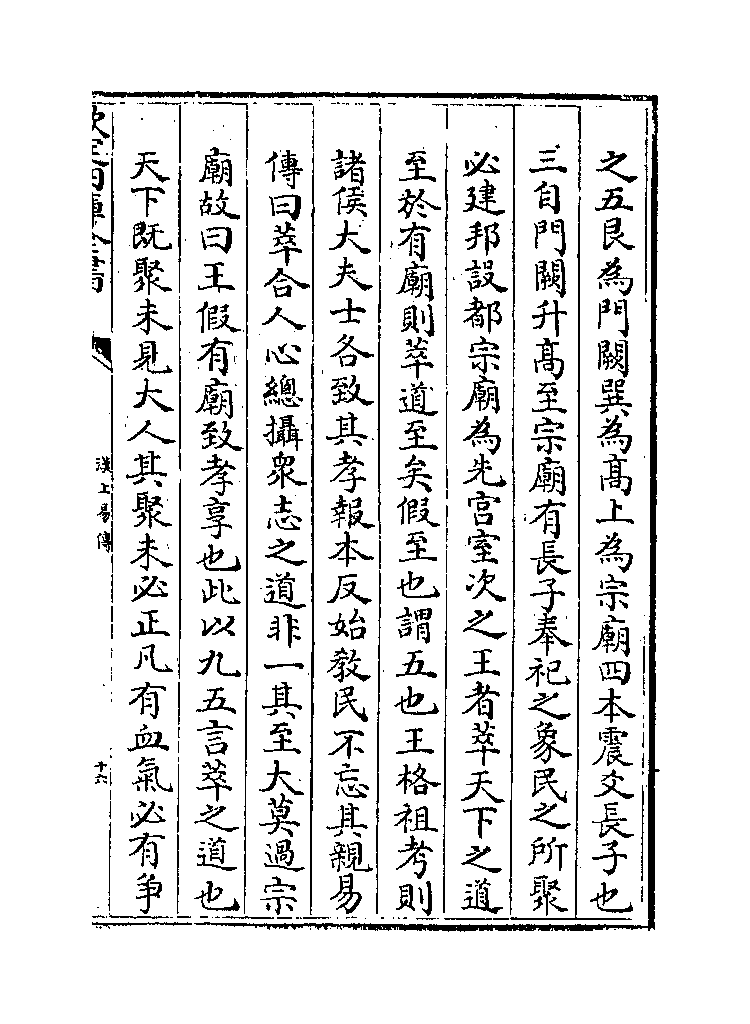 之五艮為門闕巽為髙上為宗廟四本震爻長子也
三自門闕升髙至宗廟有長子奉祀之象民之所聚
必建邦設都宗廟為先宫室次之王者萃天下之道
至於有廟則萃道至矣假至也謂五也王格祖考則
諸侯大夫士各致其孝報本反始教民不忘其親易
傳曰萃合人心總攝衆志之道非一其至大莫過宗
廟故曰王假有廟致孝享也此以九五言萃之道也
天下既聚未見大人其聚未必正凡有血氣必有争
欽定四庫全書
漢上易傳
十六